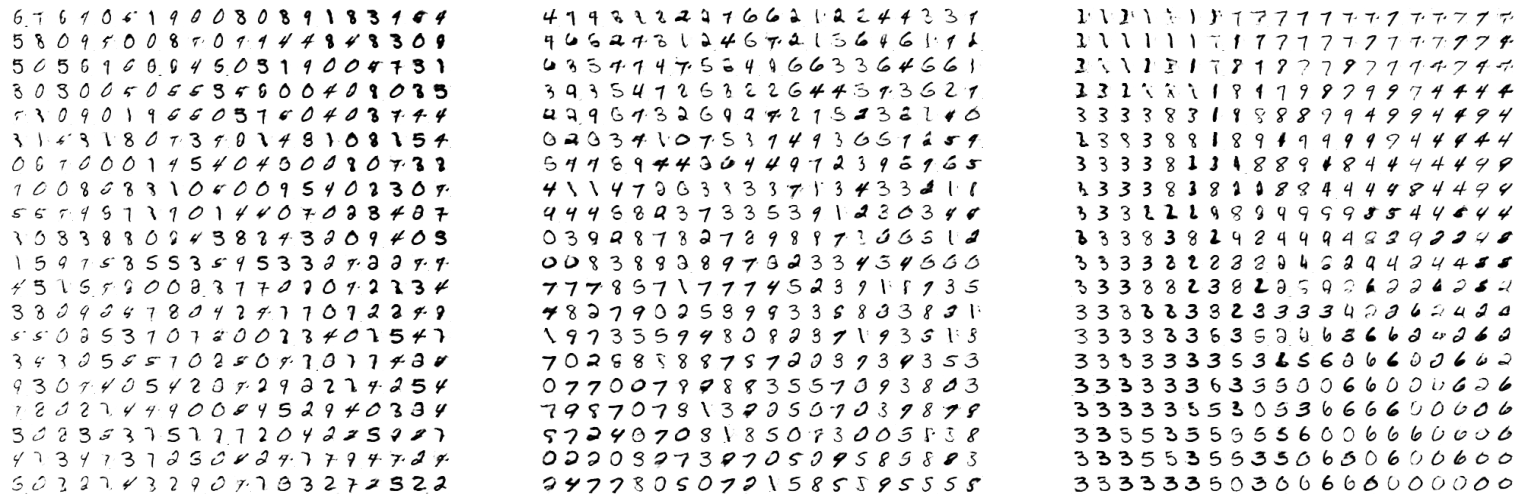 6 7 6 9 0 5 1 9 0 0 8 0 8 9 1 8 3 9 6 4
5 8 0 9 5 0 0 8 7 0 9 4 4 4 8 4 8 3 0 9
5 0 5 6 9 6 0 8 4 5 0 5 1 9 0 0 4 7 3 1
3 0 3 0 0 5 0 5 5 3 5 6 0 0 4 0 9 0 3 5
7 3 0 9 0 1 9 6 6 0 5 7 6 0 4 0 3 7 4 4
3 1 5 3 1 8 0 7 3 9 0 1 4 9 1 0 8 1 5 4
0 6 7 0 0 0 1 4 5 4 0 4 5 0 0 8 0 7 3 8
1 0 0 8 6 8 3 1 0 5 0 0 9 5 4 0 2 3 0 9
5 5 7 4 5 7 1 9 0 1 4 4 0 7 0 2 3 4 0 7
3 0 3 3 8 8 0 9 4 3 8 2 4 3 2 0 9 4 0 3
1 5 9 7 5 3 5 5 3 5 9 5 3 3 2 9 2 2 9 9
4 5 1 5 5 2 0 0 2 3 1 7 0 2 0 9 2 2 3 4
3 3 0 9 0 4 7 8 0 4 2 4 1 7 0 7 2 2 4 9
5 5 0 2 5 3 7 0 7 2 0 0 2 3 4 0 1 5 4 7
3 4 3 2 5 5 5 7 0 2 5 0 9 7 0 7 7 4 2 8
9 3 0 7 4 0 5 4 2 0 9 2 9 2 2 7 4 2 5 4
7 2 0 2 7 4 4 9 0 0 8 4 5 2 9 4 0 3 3 4
3 0 2 3 5 3 7 5 7 7 7 2 0 4 2 2 5 9 8 7
4 7 3 4 7 3 7 2 3 0 2 2 4 7 7 9 4 7 2 9
5 0 3 2 7 4 3 2 9 0 7 7 0 3 2 7 2 5 2 2
4 7 9 3 2 2 2 2 7 6 6 2 1 2 2 4 4 3 3 7
9 6 6 2 7 3 1 2 4 6 7 2 1 3 6 4 6 1 9 2
6 3 5 7 7 4 7 5 6 4 9 6 6 3 3 6 4 6 6 1
3 9 3 5 4 7 2 6 3 2 2 6 4 4 5 7 3 6 2 7
2 2 9 6 7 3 2 6 9 2 7 2 7 5 2 3 2 2 4 0
0 2 0 3 4 1 0 7 5 3 7 4 9 3 6 5 7 2 5 9
5 7 7 8 9 4 4 3 0 4 4 9 7 2 3 9 6 9 6 5
4 1 1 4 7 2 6 3 3 3 3 7 1 3 4 3 3 2 1 8
9 4 4 5 8 2 3 7 3 3 5 3 9 1 2 2 3 0 3 4 8
0 3 9 2 8 7 8 2 7 2 9 8 8 7 2 0 6 5 1 2
0 0 8 3 8 8 2 8 9 7 0 2 3 3 4 3 4 6 6 0
7 7 7 8 5 7 1 7 7 7 4 5 2 3 9 1 5 9 3 5
4 8 2 7 9 0 2 5 8 9 9 3 3 5 8 3 3 8 2 1
1 9 7 3 3 5 9 4 8 0 8 2 3 7 1 9 3 5 1 8
7 0 2 8 8 5 8 8 7 5 7 2 2 3 9 3 4 3 5 3
0 7 7 0 0 7 8 9 8 8 8 3 5 5 7 0 9 3 8 0 3
7 9 8 7 0 7 8 1 3 2 2 5 0 7 0 3 9 8 7 8
5 7 2 4 0 7 0 8 1 8 5 0 7 3 0 0 5 8 3 8
0 2 2 0 3 2 7 3 2 7 0 5 2 9 5 8 5 8 8 3
2 4 7 7 8 0 5 0 7 2 1 5 8 5 5 9 5 5 5 5
1 1 1 1 1 1 1 7 7 7 7 7 7 7 7 7 7 7 7 7
2 1 1 1 1 1 7 1 7 7 7 7 7 7 7 7 7 7 7 9
2 1 1 1 3 1 7 8 7 8 7 7 9 7 7 7 4 7 4 7
2 3 2 1 1 1 8 9 7 9 8 7 9 9 7 4 4 4 4 4
3 3 3 3 8 3 1 9 8 8 8 7 9 4 9 9 4 4 9 4
2 3 8 3 8 8 1 8 9 9 9 9 9 9 9 4 4 4 4 4
3 3 3 3 8 2 3 1 8 8 9 8 4 8 4 4 4 4 9 9
3 3 3 3 8 3 8 2 8 8 8 4 4 4 4 8 4 4 9 4
3 3 3 2 2 2 9 8 9 8 9 9 9 8 5 4 4 8 4 4
8 3 3 8 3 8 2 9 2 4 4 9 4 8 2 9 2 2 4 8
3 3 3 3 2 2 2 8 2 2 4 6 2 9 4 2 4 4 8 8
3 3 3 8 8 2 3 8 2 2 5 9 2 6 2 2 6 2 8 2
3 3 3 2 2 3 3 2 3 3 3 3 4 2 2 6 2 4 2 0
3 3 3 3 3 3 5 3 5 2 0 6 3 6 6 2 2 2 6 2
3 3 3 3 3 3 3 5 3 2 5 6 0 6 6 0 2 6 6 2
3 3 3 3 3 3 6 3 5 5 0 0 6 6 0 0 0 6 2 6
3 3 3 3 3 5 5 3 0 5 3 6 6 6 6 0 0 0 0 6
3 3 5 5 3 3 5 5 5 5 6 0 0 6 6 6 0 0 0 0
3 3 3 5 5 3 5 5 3 5 0 6 6 0 6 0 0 6 0 0
3 3 3 5 5 5 5 5 0 3 0 6 6 6 0 0 0 0 0 0